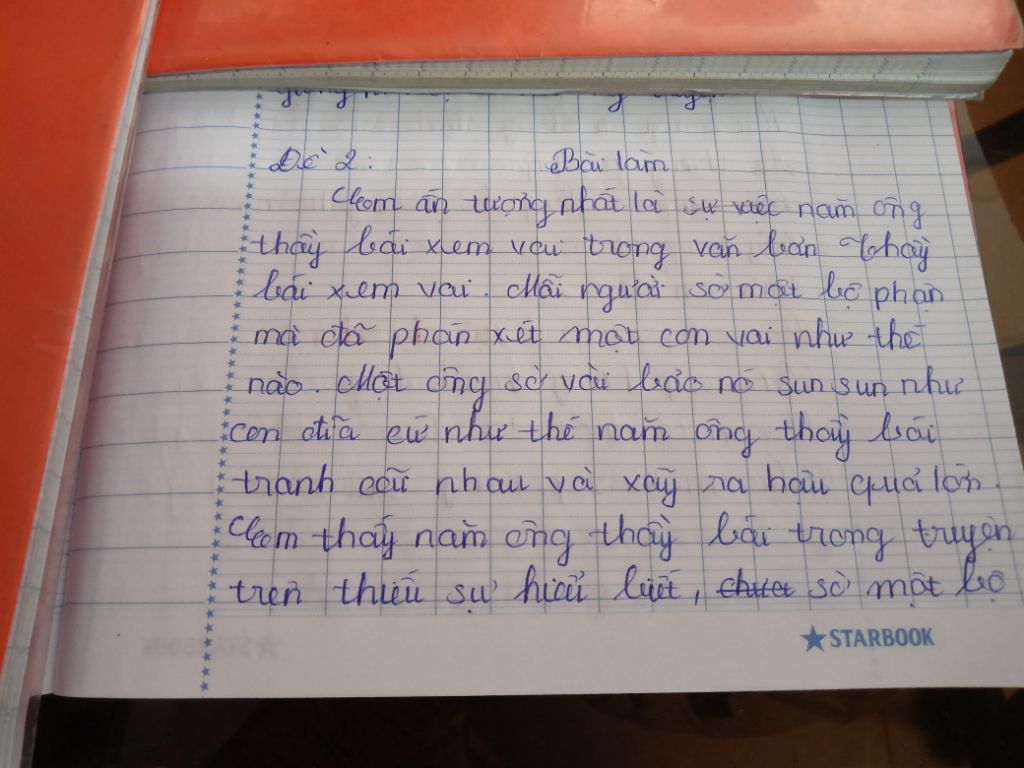 Đề 2: Bài làm
Em ấn tượng nhất là sự việc năm ông
thầy bói xem voi trong văn bản Thầy
bói xem voi. Mỗi người sờ một bộ phận
mà đã phán xét một con voi như thế
nào. Một ông sờ vòi bảo nó sun sun như
con đỉa cứ như thế năm ông thầy bói
tranh cãi nhau và xảy ra hậu quả lớn.
Em thấy năm ông thầy bói trong truyện
trên thiếu sự hiểu biết, sờ một bộ
★ STARBOOK